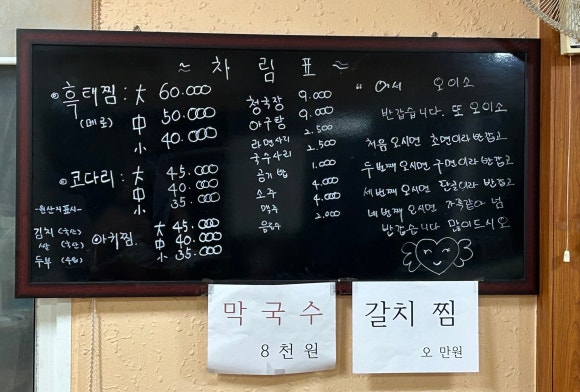 ≈ 차 림 표 ≈
흑태찜 : 大 60.000
(메로) 中 50.000
小 40.000
코다리 : 大 45.000
中 40.000
小 35.000
아귀찜 大 45.000
中 40.000
小 35.000
-원산지표시-
김치 (국산)
쌀 (국산)
두부
청국장 9.000
아구탕 9.000
라면사리 2.500
국수사리 2.500
공기밥 1.000
소주 4.000
맥주 4.000
음료수 2.000
" 어서 오이소
반갑습니다. 또 오이소
처음 오시면 초면이라 반갑고
두번째 오시면 구면이라 반갑고
세번째 오시면 단골이라 반갑고
네번째 오시면 가족같아 넘
반갑습니다 많이드시오
막 국 수
8 천 원
갈 치 찜
오 만원